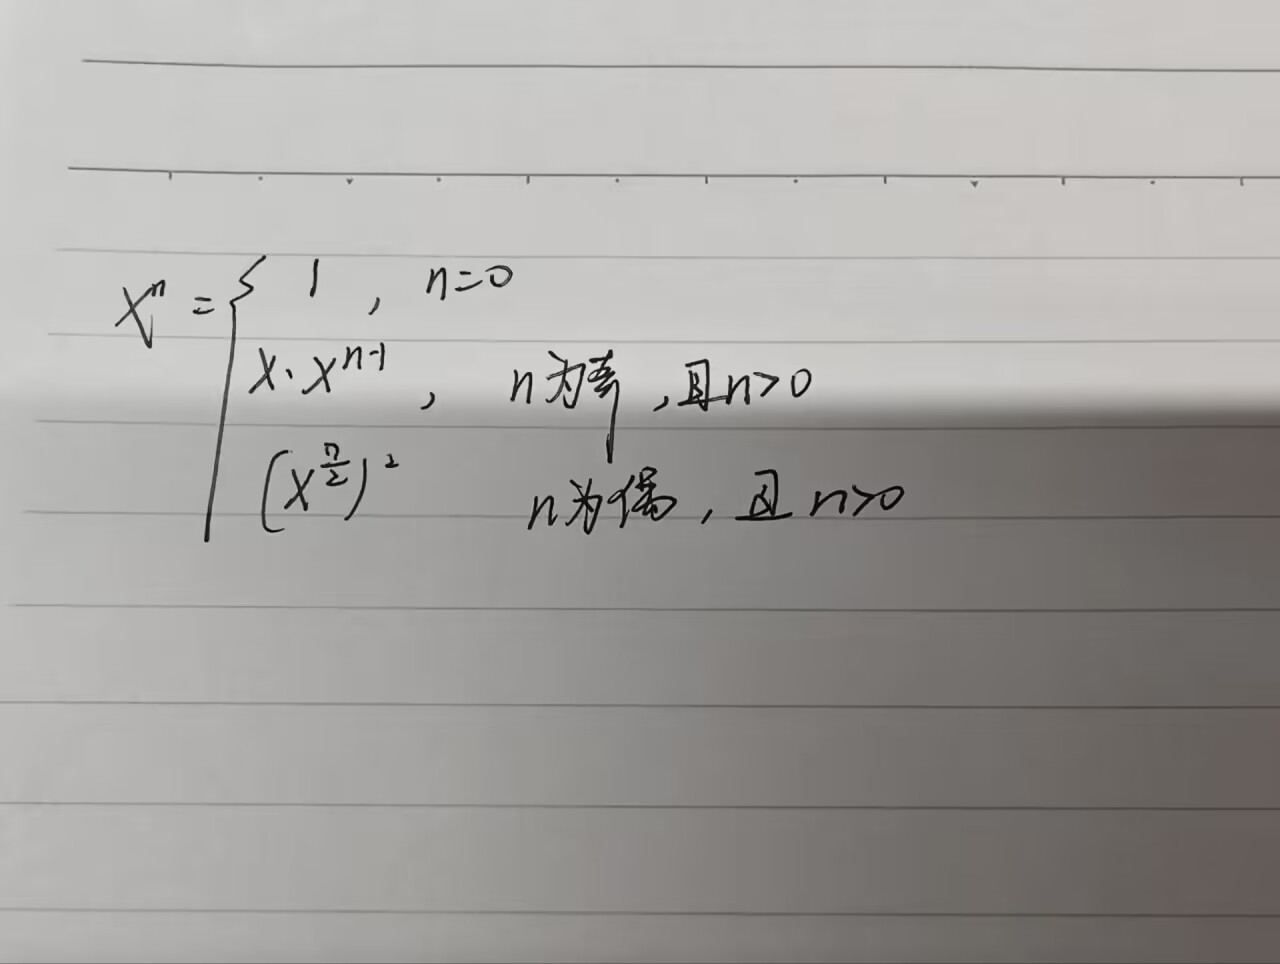 xⁿ = { 1 , n=0
x·xⁿ⁻¹ , n为奇 , 且n>0
(x^(n/2))² n为偶 , 且n>0